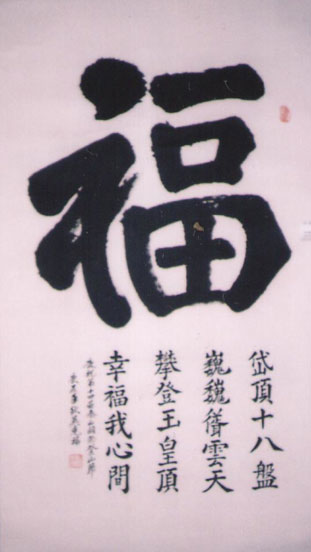 福
岱頂十八盤
巍巍聳雲天
攀登玉皇頂
幸福我心間